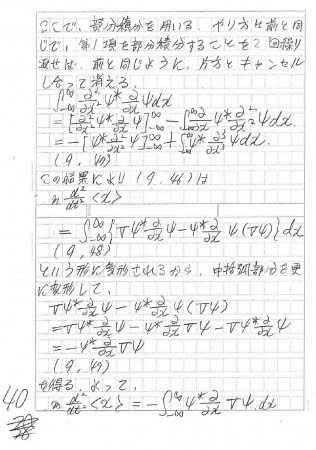 ここで、部分積分を用いる。やり方は前と同
じで、第1項を部分積分することを2回繰り
返せば、前と同じように、片方とキャンセル
し合って消える。
∫_{-∞}^{∞} ∂²/∂x² Ψ* ∂/∂x Ψ dx
= [∂/∂x Ψ* ∂/∂x Ψ]_{-∞}^{∞} - ∫_{-∞}^{∞} ∂/∂x Ψ* ∂²/∂x² Ψ dx.
= -[Ψ* ∂²/∂x² Ψ]_{-∞}^{∞} + ∫_{-∞}^{∞} Ψ* ∂³/∂x³ Ψ dx.
(9, 47)
この結果により (9, 46) は
m d²/dt² <x>
= ∫_{-∞}^{∞} {VΨ* ∂/∂x Ψ - Ψ* ∂/∂x Ψ (VΨ)} dx
(9, 48)
という形に変形されるから、中括弧部分を更
に変形して、
VΨ* ∂/∂x Ψ - Ψ* ∂/∂x Ψ (VΨ)
= VΨ* ∂/∂x Ψ - Ψ* ∂/∂x VΨ - VΨ* ∂/∂x Ψ
= -Ψ* ∂/∂x VΨ
(9, 49)
を得る。よって、
m d²/dt² <x> = -∫_{-∞}^{∞} Ψ* ∂/∂x VΨ dx
40